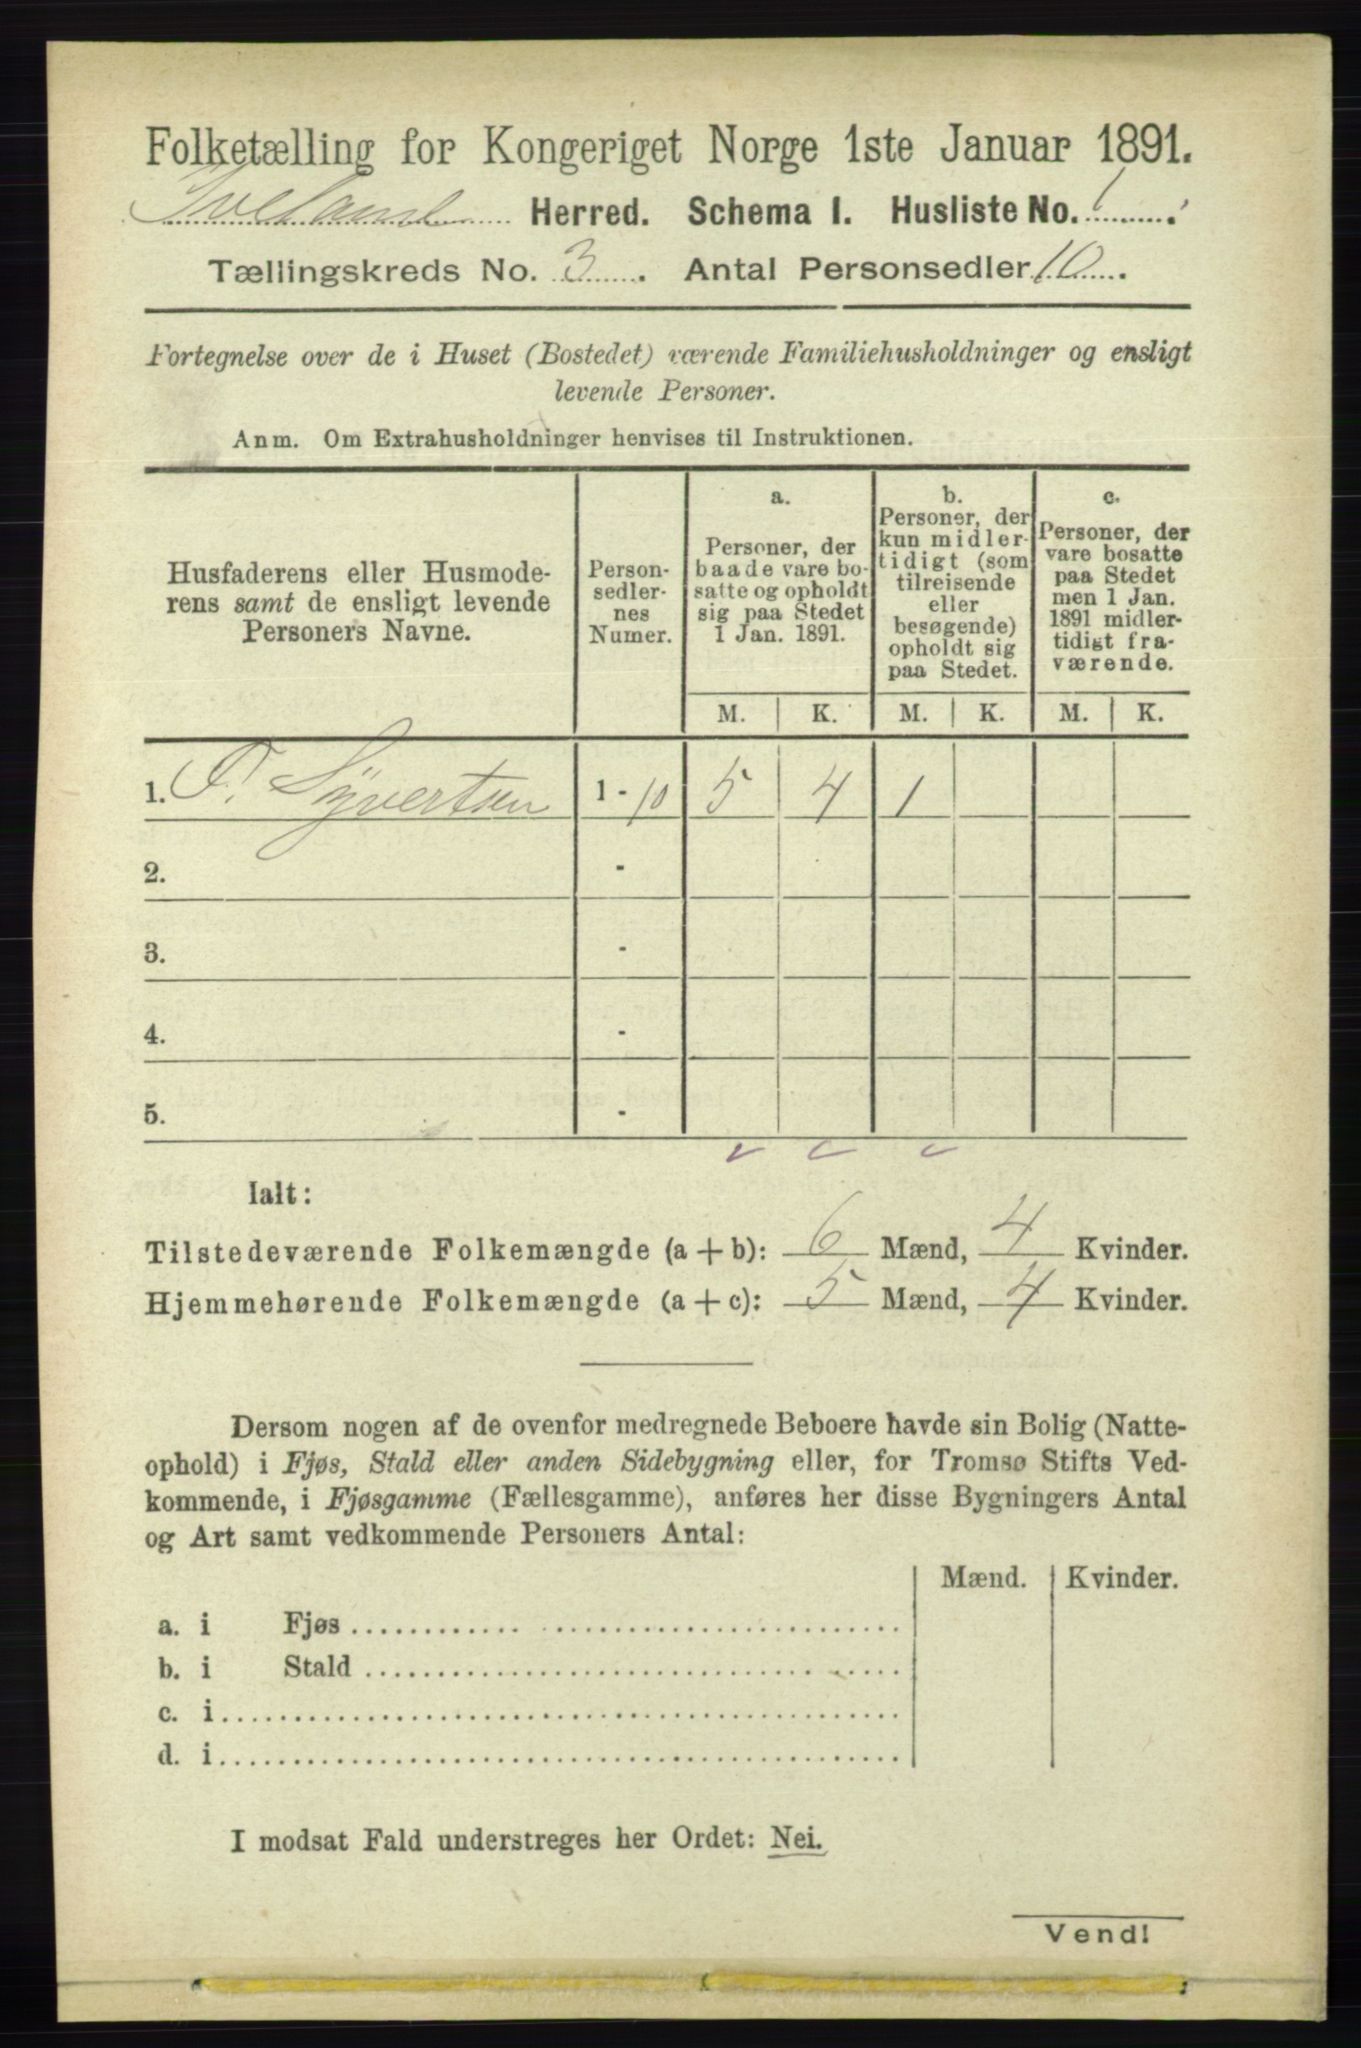 Folketælling for Kongeriget Norge 1ste Januar 1891.
Iveland Herred. Schema I. Husliste No. 1.
Tællingskreds No. 3. Antal Personsedler 10.
Fortegnelse over de i Huset (Bostedet) værende Familiehusholdninger og ensligt
levende Personer.
Anm. Om Extrahusholdninger henvises til Instruktionen.
Husfaderens eller Husmode-
rens samt de ensligt levende
Personers Navne.
Person-
sedler-
nes
Numer.
a.
Personer, der
baade vare bo-
satte og opholdt
sig paa Stedet
1 Jan. 1891.
b.
Personer, der
kun midler-
tidigt (som
tilreisende
eller
besøgende)
opholdt sig
paa Stedet.
c.
Personer, der
vare bosatte
paa Stedet
men 1 Jan.
1891 midler-
tidigt fra-
værende.
M. K. M. K. M. K.
1. Syvertsen 1 - 10 5 4 1
2. -
3. -
4. -
5. -
Ialt:
Tilstedeværende Folkemængde (a + b): 6 Mænd, 4 Kvinder.
Hjemmehørende Folkemængde (a + c): 5 Mænd, 4 Kvinder.
Dersom nogen af de ovenfor medregnede Beboere havde sin Bolig (Natte-
ophold) i Fjøs, Stald eller anden Sidebygning eller, for Tromsø Stifts Ved-
kommende, i Fjøsgamme (Fællesgamme), anføres her disse Bygningers Antal
og Art samt vedkommende Personers Antal:
Mænd. Kvinder.
a. i Fjøs
b. i Stald
c. i
d. i
I modsat Fald understreges her Ordet: Nei.
Vend!